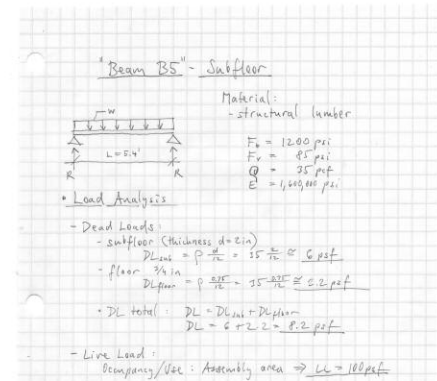 "Beam B5" - Subfloor
Material:
- structural lumber
w
L = 5.4'
R R
F_b = 1200 psi
F_v = 85 psi
ρ = 35 pcf
E = 1,600,000 psi
• Load Analysis
- Dead Loads:
- subfloor (thickness d=2in)
DL_sub = ρ d/12 = 35 2/12 ≅ 6 psf
- floor 3/4 in
DL_floor = ρ 0.75/12 = 35 0.75/12 ≅ 2.2 psf
• DL total: DL = DL_sub + DL_floor
DL = 6 + 2.2 = 8.2 psf
- Live Load:
Occupancy/Use: Assembly area ⇒ LL = 100 psf